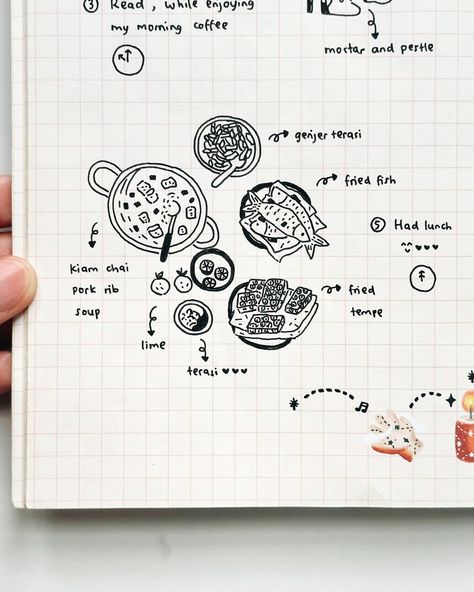 ③ Read, while enjoying
my morning coffee
mostar and pestle
genjer terasi
fried fish
⑤ Had lunch
kiam chai
pork rib
soup
fried
tempe
lime
terasi ♥♥♥